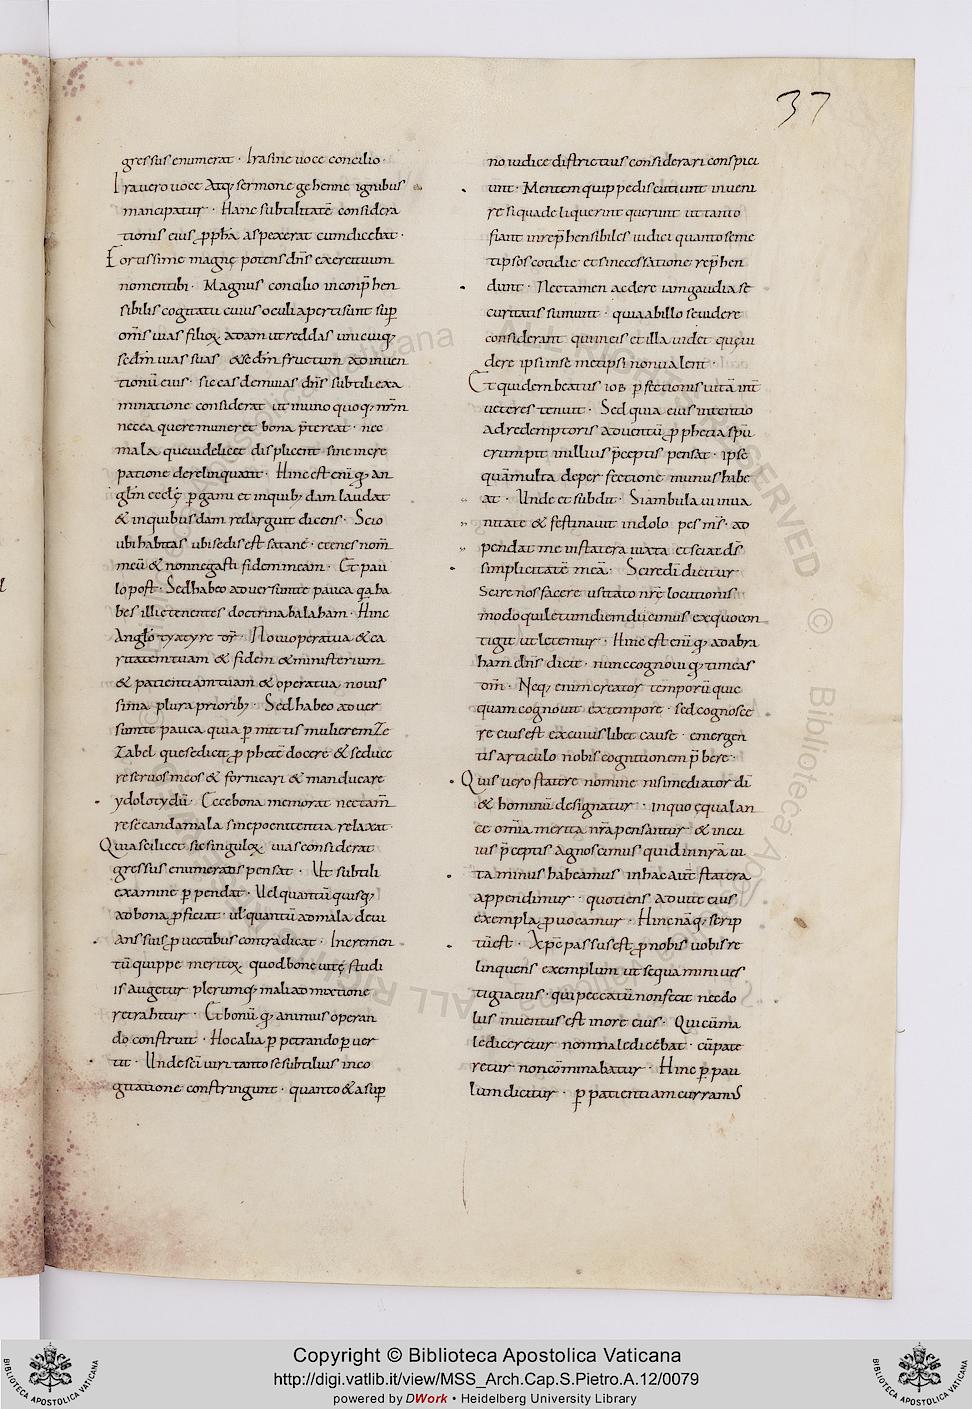 37
gressus enumerat · Ira sine uoce concilio ·
Ira uero uoce Atq; sermone gehenne ignibus
mancipatur · Hanc subtilitatē considera
tionis eius ꝓpha aspexerat cum dicebat ·
Fortissime magnę potens dñs exercituum
nomen tibi · Magnus concilio inconp̄hen
sibilis cogitatu cuius oculi aperti sunt sup̄
om̄s uias filioꝝ adam ut reddas unicuiq;
sedm̄ uias suas & sedm̄ fructum ad inuen
tionū eius · sic eas demuias dn̄s subtili exa
minatione considerat ut nunc quoq; nr̄m
nec ea que remuneret bona p̄tereat · nec
mala que uidelicet displicent sine incre
patione derelinquant · Hinc est eni q; an
glm̄ ecclę ꝑgami et in quib; dam laudat
& in quibusdam redarguit dicens · Scio
ubi habitas ubi sedis est satane · et enes nom̄
meū & non negasti fidem meam · Et pau
lo post · Sed habeo aduersum te pauca qa ha
bes illic tenentes doctrina balaham · Hinc
Anglo tyatyre dr̄ · Noui opera tua & ca
ritatem tuam & fidem & ministerium
& patientiam tuam & opera tua nouis
sima plura priorib; · Sed habeo aduer
sum te pauca quia ꝑmittis mulierem Ze
Zabel que se dicit ꝓpheten docere & seduce
re seruos meos & fornicari & manducare
ydolotydū · Ecce bona memorat nec tam̄
resecanda mala sine poenitentia relaxat ·
Quia scilicet sic singuloꝝ uias considerat
gressus enumerans pensat · Ut subtili
examine ꝑpendat · Uel quantū quisq;
ad bona ꝓficiat · ul quantū ad mala deui
ans suis ꝓuectibus contradicat · Incremen
tū quippe meritoꝝ quod bone uitę studi
is augetur plerumq; mali admixtione
retrahitur · Et bonū q; animus operan
do construit · Hoc alia ꝑpetrando ꝑuer
tit · Unde sc̄i uiri tanto se subtilius in co
gitatione constringunt · quanto & a sup̄
no iudice districtius considerari conspici
unt · Mentem quippe discutiunt inueni
re si qua deliquerint querunt ut tanto
fiant inrep̄hensibiles iudici quanto seme
tipsos cotidie et sine cessatione rep̄hen
dunt · Nec tamen ac de re iam gaudia se
curitatis sumunt · quia ab illo se uidere
considerant qui in eis et illa uidet quę ui
dere ipsi in semetipsi non ualent ·
Et quidem beatus iob ꝑfectionis uitā int
ueteres tenuit · Sed quia eius intentio
ad redemptoris aduentū ꝓphetia spū
erumpit in illius p̄ceptis pensat · ipse
quā multa de perfectione minus habe
at · Unde et subdit · Si ambulaui in ua
nitate & festinauit in dolo pes ms̄ · ad
pendat me in statera iusta et sciat ds̄
simplicitatē meā · Scire di dicitur
scire nos facere usitato nr̄ę locutionis
modo qui letum diem dicimus ex quo con
tigit ut letemur · Hinc est eni q; ad abra
ham dn̄s dicit · nunc cognoui q; timeas
dm̄ · Neq; enim creator temporū quic
quam cognouit ex tempore · sed cognosce
re eius est ex cuiuslibet cause · emergen
tis articulo nobis cognitionem p̄bere ·
Quis uero statere nomine nisi mediator di
& hominū designatur · in quo ęqua lan
ce om̄ia merita nr̄a pensantur & in cu
ius p̄ceptis agnoscimus quid in nr̄a ui
ta minus habeamus in hac aut̄ statera
appendimur · quotiens ad uite eius
exempla ꝓuocamur · Hinc nāq; scrip
tū est · Xp̄c passus est ꝓ nobis uobis re
linquens exemplum ut sequamini ues
tigia eius · qui peccatū non fecit nec do
lus inuentus est in ore eius · Qui cū ma
lediceretur non maledicebat · cū pate
retur non cōminabatur · Hinc ꝑ pau
lum dicitur · ꝑ patientiam curramus
Copyright © Biblioteca Apostolica Vaticana
http://digi.vatlib.it/view/MSS_Arch.Cap.S.Pietro.A.12/0079
powered by DWork • Heidelberg University Library